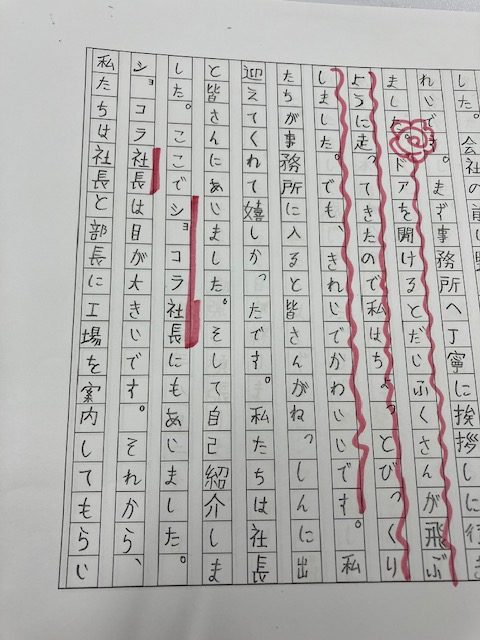 した。会社の前に
れいです。まず事務所へ丁寧に挨拶しに行き
ました。ドアを開けるとだいふくさんが飛ぶ
ように走ってきたので私はちょっとびっくり
しました。でも、きれいでかわいいです。私
たちが事務所に入ると皆さんがねっしんに出
迎えてくれて嬉しかったです。私たちは社長
と皆さんにあいました。そして自己紹介しま
した。ここでショコラ社長にもあいました。
ショコラ社長は目が大きいです。それから、
私たちは社長と部長に工場を案内してもらい